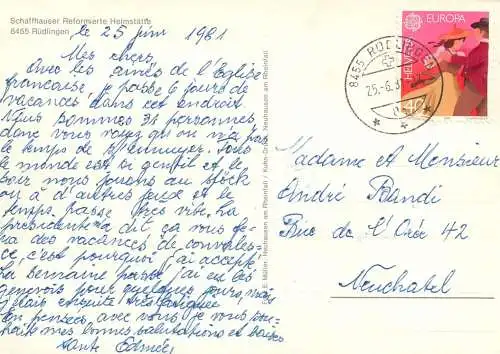 Schaffhauser Reformierte Heimstätte
8455 Rüdlingen
le 25 juin 1981
Mes chers,
Avec les aînés de l'Eglise
française, je passe 6 jours de
vacances dans cet endroit.
Nous sommes 31 personnes
donc vous voyez qu'on n'a pas
le temps de s'ennuyer. Tous
le monde est si gentil et le
soir nous jouons au
ou à d'autres jeux et le
temps passe très vite. La
présidente a dit, ça vous fe-
ra des vacances de convales-
ce, c'est pourquoi j'ai accepté
la semaine passée j'ai eu les
genevois pour quelques jours, mais
j'étais ensuite très fatiguée
En pensées avec vous je vous sou-
haite mes bonnes salutations et baisers
tante Edmée
Foto E. Müller, Neuhausen am Rheinfall / Kuhn-Druck, Neuhausen am Rheinfall
EUROPA
HELVETIA
40
8455 RÜDLINGEN
25.-6.81
Madame et Monsieur
André Bandi
Rue de l'Orée 42
Neuchatel